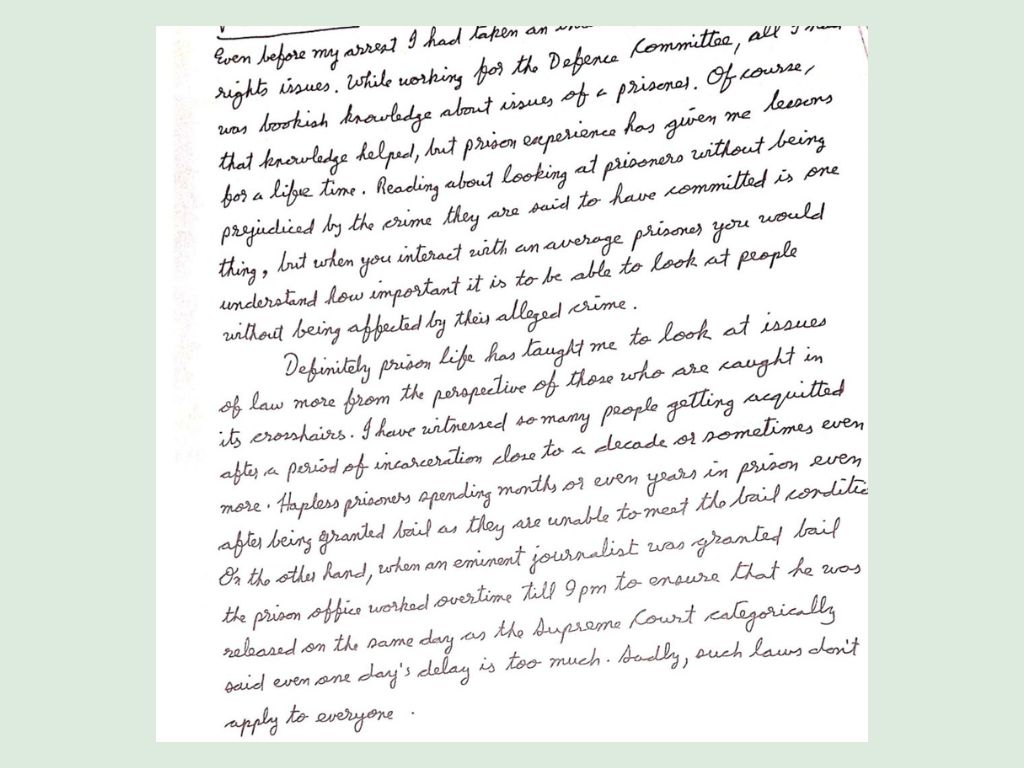 Even before my arrest I had taken an
rights issues. While working for the Defence Committee, all I
was bookish knowledge about issues of a prisoner. Of course,
that knowledge helped, but prison experience has given me lessons
for a life time. Reading about looking at prisoners without being
prejudiced by the crime they are said to have committed is one
thing, but when you interact with an average prisoner you would
understand how important it is to be able to look at people
without being affected by their alleged crime.
Definitely prison life has taught me to look at issues
of law more from the perspective of those who are caught in
its crosshairs. I have witnessed so many people getting acquitted
after a period of incarceration close to a decade or sometimes even
more. Hapless prisoners spending months or even years in prison even
after being granted bail as they are unable to meet the bail conditio
On the other hand, when an eminent journalist was granted bail
the prison office worked overtime till 9pm to ensure that he was
released on the same day as the Supreme Court categorically
said even one day's delay is too much. Sadly, such laws don't
apply to everyone.